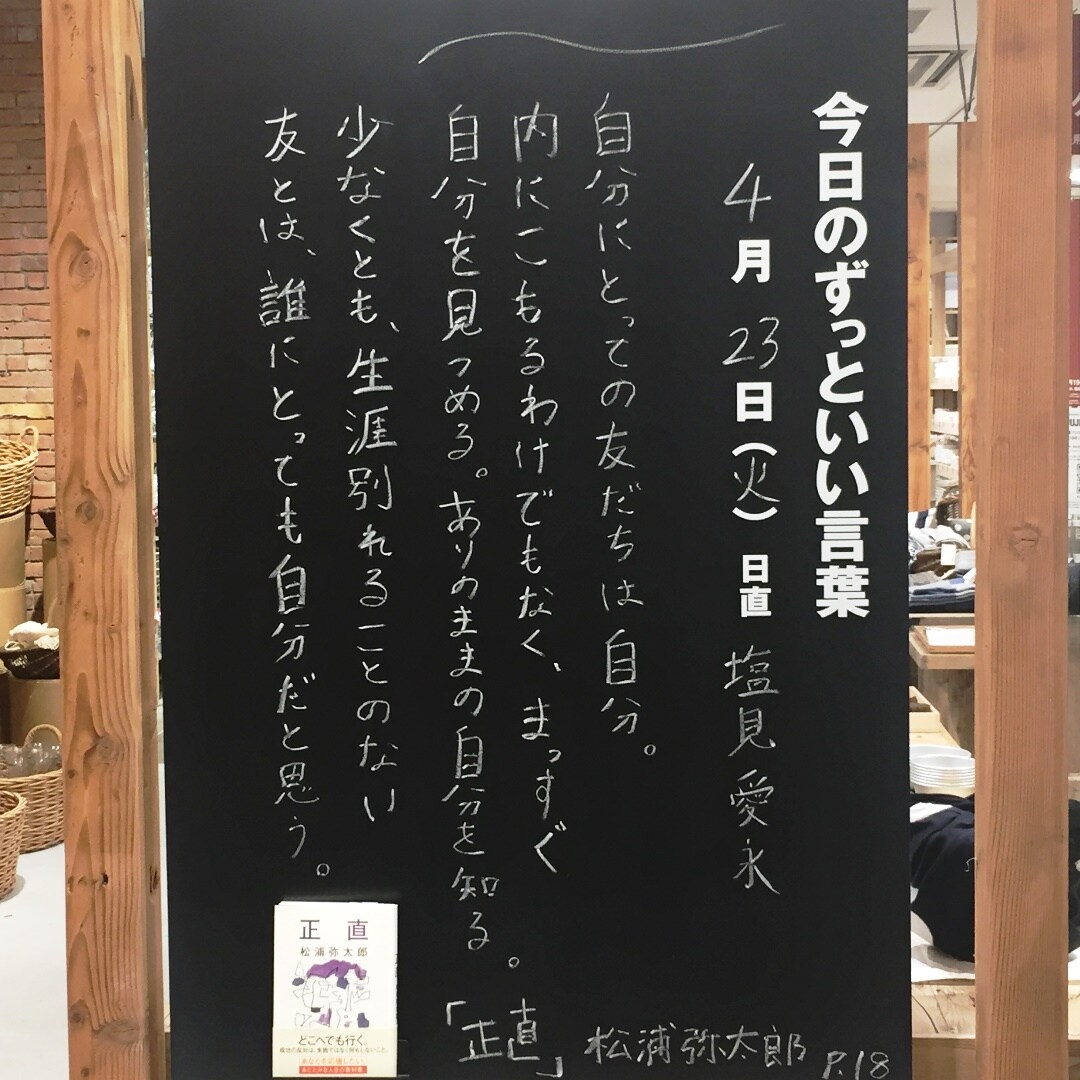 今日のずっといい言葉
4月23日(火) 日直 塩見愛永
自分にとっての友だちは自分。
内にこもるわけでもなく、まっすぐ
自分を見つめる。ありのままの自分を知る。
少なくとも、生涯別れることのない
友とは、誰にとっても自分だと思う。
「正直」 松浦弥太郎 P.18
正直
松浦弥太郎
どこへでも行く。
成功の反対は、失敗ではなく何もしないこと。